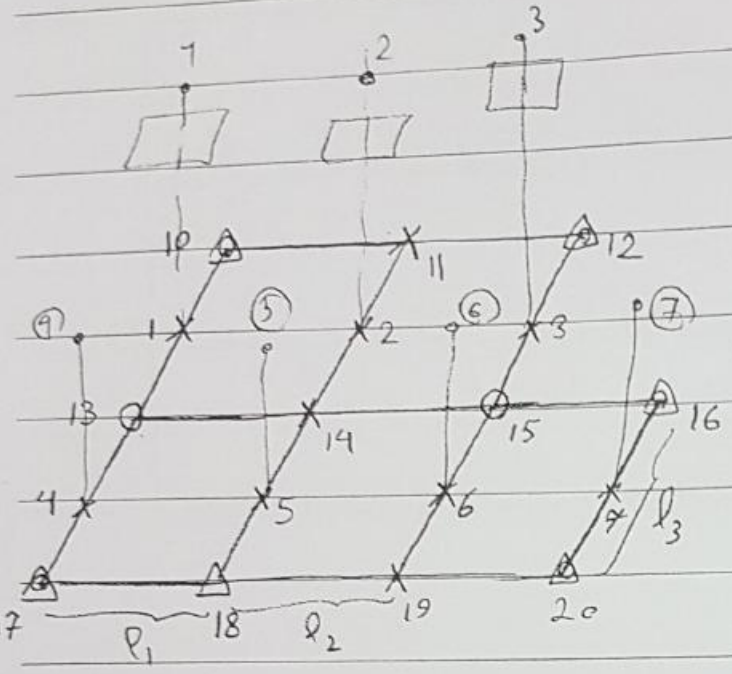 1 2 3
10 11 12
④ 1 ⑤ 2 ⑥ 3 ⑦
13 14 15 16
4 5 6 7 l₃
7 18 19 20
l₁ l₂